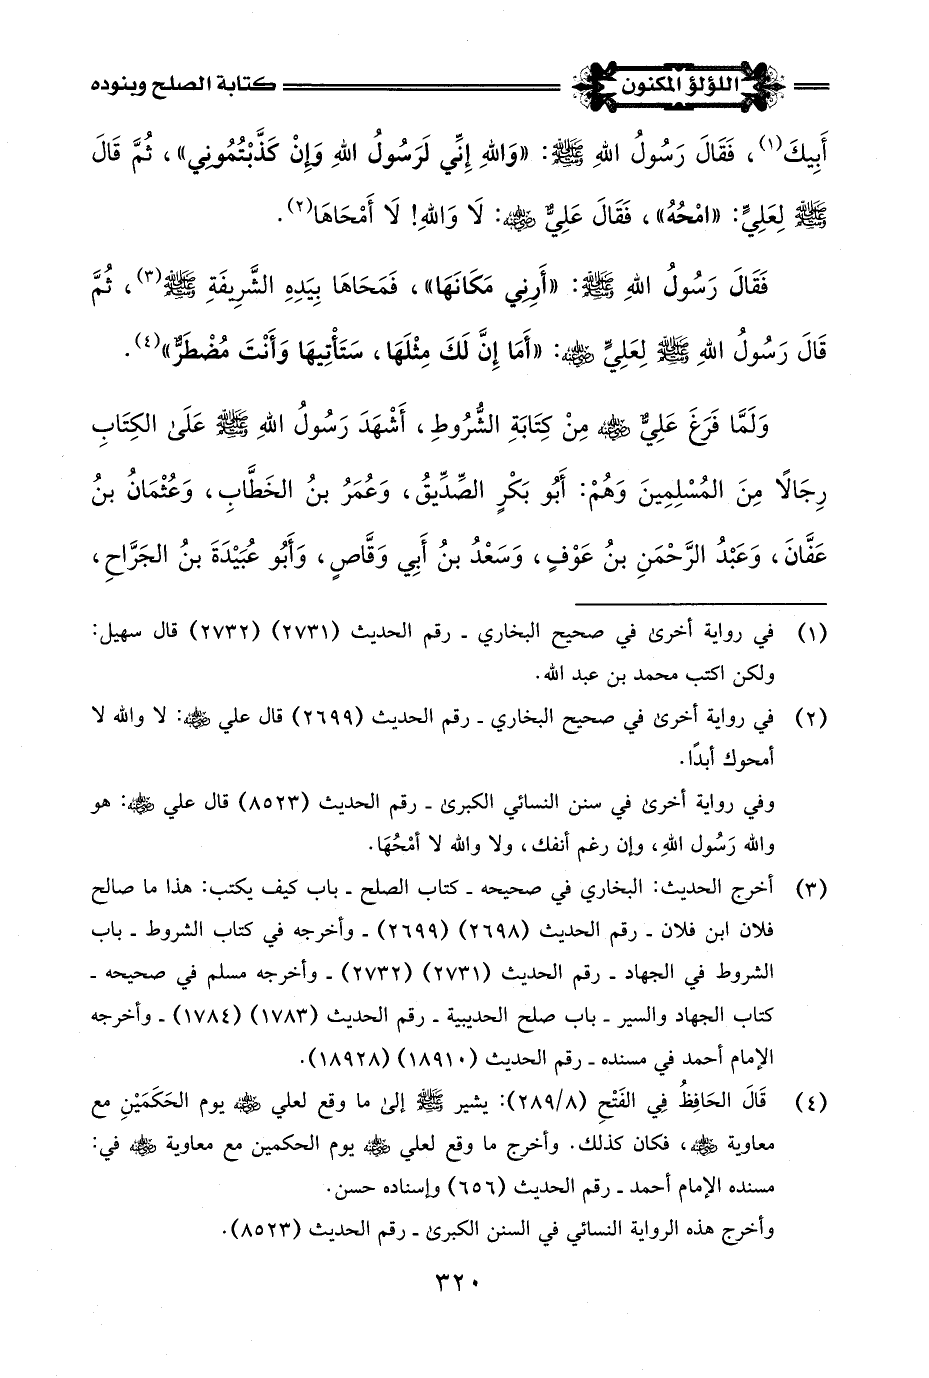 كتابة الصلح وبنوده
اللؤلؤ المكنون
أَبِيكَ(١)، فَقَالَ رَسُولُ اللهِ ﷺ: «وَاللهِ إِنِّي لَرَسُولُ اللهِ وَإِنْ كَذَّبْتُمُونِي»، ثُمَّ قَالَ
ﷺ لِعَلِيٍّ: «امْحُهُ»، فَقَالَ عَلِيٌّ رضي الله عنه: لَا وَاللهِ! لَا أَمْحَاهَا(٢).
فَقَالَ رَسُولُ اللهِ ﷺ: «أَرِنِي مَكَانَهَا»، فَمَحَاهَا بِيَدِهِ الشَّرِيفَةِ ﷺ(٣)، ثُمَّ
قَالَ رَسُولُ اللهِ ﷺ لِعَلِيٍّ رضي الله عنه: «أَمَا إِنَّ لَكَ مِثْلَهَا، سَتَأْتِيهَا وَأَنْتَ مُضْطَرٌّ»(٤).
وَلَمَّا فَرَغَ عَلِيٌّ رضي الله عنه مِنْ كِتَابَةِ الشُّرُوطِ، أَشْهَدَ رَسُولُ اللهِ ﷺ عَلَىٰ الكِتَابِ
رِجَالًا مِنَ المُسْلِمِينَ وَهُمْ: أَبُو بَكْرٍ الصِّدِّيقُ، وَعُمَرُ بنُ الخَطَّابِ، وَعُثْمَانُ بنُ
عَفَّانَ، وَعَبْدُ الرَّحْمَنِ بنُ عَوْفٍ، وَسَعْدُ بنُ أَبِي وَقَّاصٍ، وَأَبُو عُبَيْدَةَ بنُ الجَرَّاحِ،
(١) في رواية أخرىٰ في صحيح البخاري ـ رقم الحديث (٢٧٣١) (٢٧٣٢) قال سهيل:
ولكن اكتب محمد بن عبد الله.
(٢) في رواية أخرىٰ في صحيح البخاري ـ رقم الحديث (٢٦٩٩) قال علي رضي الله عنه: لا والله لا
أمحوك أبدًا.
وفي رواية أخرىٰ في سنن النسائي الكبرىٰ ـ رقم الحديث (٨٥٢٣) قال علي رضي الله عنه: هو
والله رَسُول اللهِ، وإن رغم أنفك، ولا والله لا أمْحُهَا.
(٣) أخرج الحديث: البخاري في صحيحه ـ كتاب الصلح ـ باب كيف يكتب: هذا ما صالح
فلان ابن فلان ـ رقم الحديث (٢٦٩٨) (٢٦٩٩) ـ وأخرجه في كتاب الشروط ـ باب
الشروط في الجهاد ـ رقم الحديث (٢٧٣١) (٢٧٣٢) ـ وأخرجه مسلم في صحيحه ـ
كتاب الجهاد والسير ـ باب صلح الحديبية ـ رقم الحديث (١٧٨٣) (١٧٨٤) ـ وأخرجه
الإمام أحمد في مسنده ـ رقم الحديث (١٨٩١٠) (١٨٩٢٨).
(٤) قَالَ الحَافِظُ فِي الفَتْحِ (٢٨٩/٨): يشير ﷺ إلىٰ ما وقع لعلي رضي الله عنه يوم الحَكَمَيْنِ مع
معاوية رضي الله عنه، فكان كذلك. وأخرج ما وقع لعلي رضي الله عنه يوم الحكمين مع معاوية رضي الله عنه في:
مسنده الإمام أحمد ـ رقم الحديث (٦٥٦) وإسناده حسن.
وأخرج هذه الرواية النسائي في السنن الكبرىٰ ـ رقم الحديث (٨٥٢٣).
٣٢٠